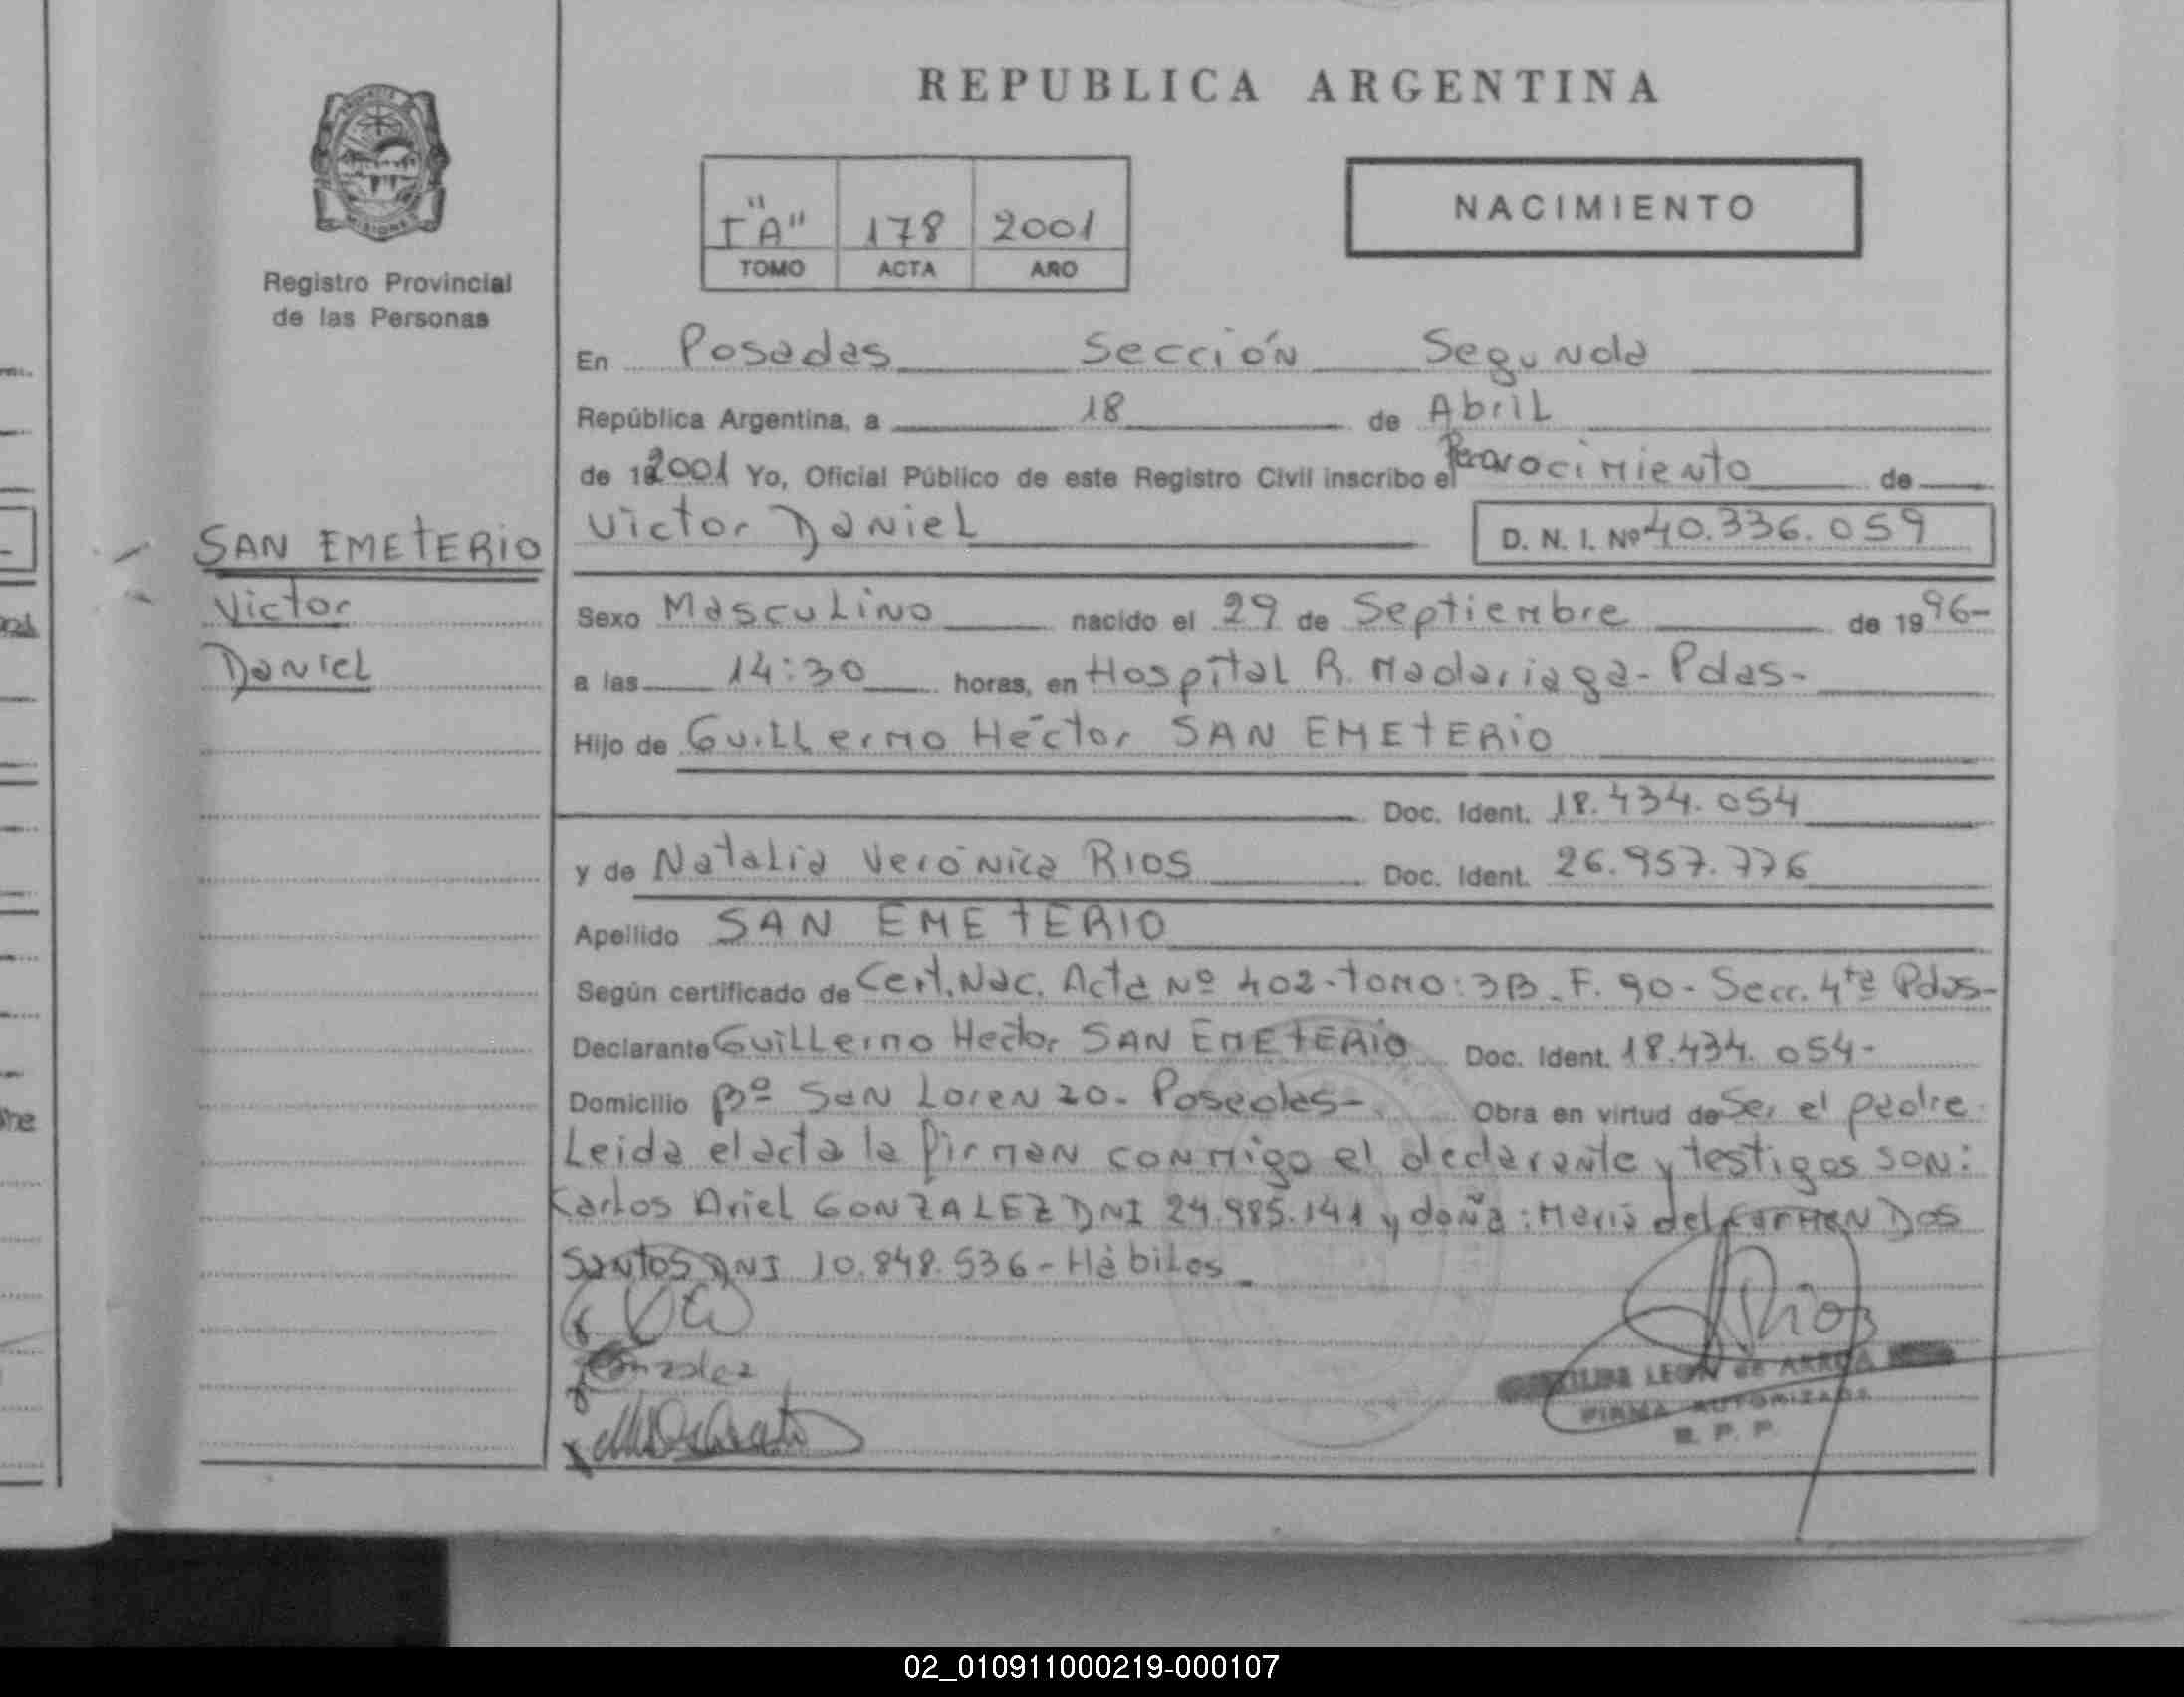 REPUBLICA ARGENTINA
NACIMIENTO
T "A" 178 2001
TOMO ACTA AÑO
Registro Provincial
de las Personas
En Posadas Sección Segunda
República Argentina, a 18 de Abril
de 2001 Yo, Oficial Público de este Registro Civil inscribo el Reconocimiento de
Victor Daniel D. N. I. Nº 40.336.059
SAN EMETERIO
Victor
Daniel
Sexo Masculino nacido el 29 de Septiembre de 1996-
a las 14:30 horas, en Hospital R. Madariaga- Pdas-
Hijo de Guillermo Héctor SAN EMETERIO
Doc. Ident. 18.434.054
y de Natalia Verónica RIOS Doc. Ident. 26.957.776
Apellido SAN EMETERIO
Según certificado de Cert. Nac. Acta Nº 402-tomo: 3B_F. 90- Secc. 4ta Pdas-
Declarante Guillermo Hector SAN EMETERIO Doc. Ident. 18.434.054-
Domicilio Bº San Lorenzo- Posadas- Obra en virtud de Ser el padre
Leida el acta la firman conmigo el declarante y testigos son:
Carlos Ariel GONZALEZ DNI 24.985.141 y doña: Maria del Carmen Dos
Santos DNI 10.848.536- Hàbiles_
Gonzalez
LEON de ARRÚA
FIRMA AUTORIZADA
R. P. P.
02_010911000219-000107